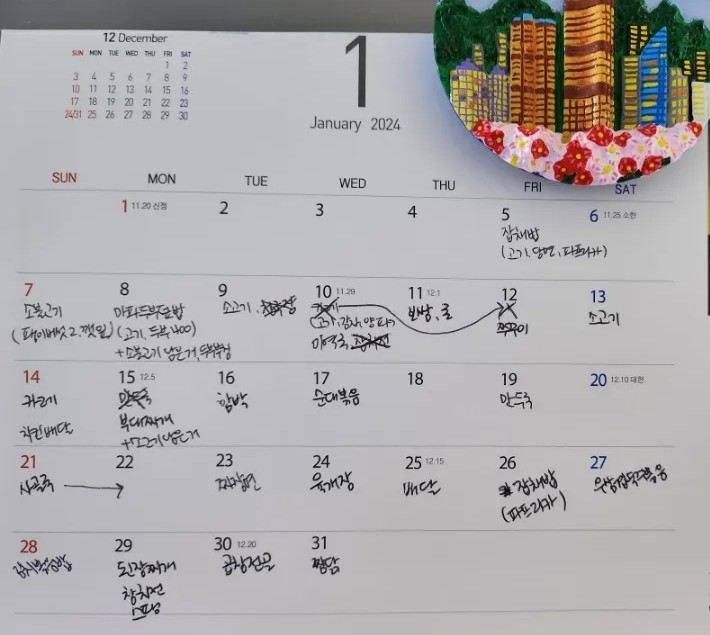 12 December
SUN MON TUE WED THU FRI SAT
1 2
3 4 5 6 7 8 9
10 11 12 13 14 15 16
17 18 19 20 21 22 23
24/31 25 26 27 28 29 30
1
January 2024
SUN MON TUE WED THU FRI SAT
1 11.20 신정 2 3 4 5 6 11.25 소한
잡채밥
(고기, 당면, 파프리카)
7 8 9 10 11.29 11 12.1 12 13
소불고기 마파두부덮밥 소고기, 카레 소고기
(고기, 두부 400) (고기, 감자, 양파)
+소불고기 남은거, 미역국,
14 15 12.5 16 17 18 19 20 12.10 대한
카레 만두국 함박 순대볶음 만두국
치킨배달 부대찌개
+소고기 남은거
21 22 23 24 25 12.15 26 27
사골국 짜장면 육개장 배달 잡채밥
(파프리카)
28 29 30 12.20 31
된장찌개 곱창전골 찜닭
참치전
스팸